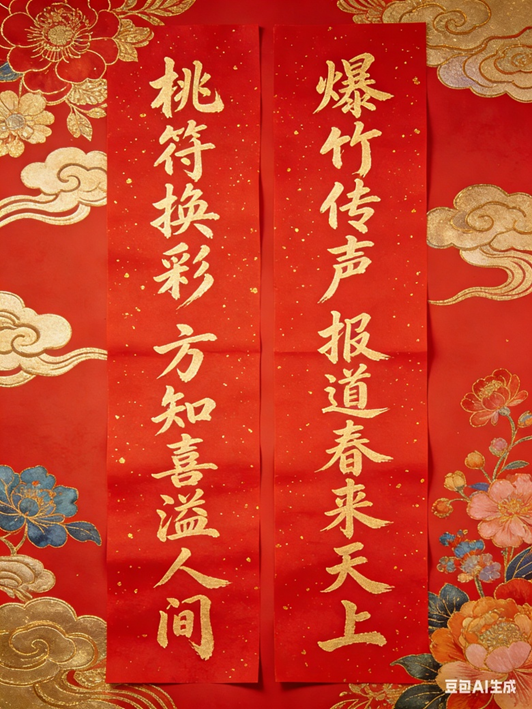 爆竹传声 报道春来天上
桃符换彩 方知喜溢人间
豆包AI生成